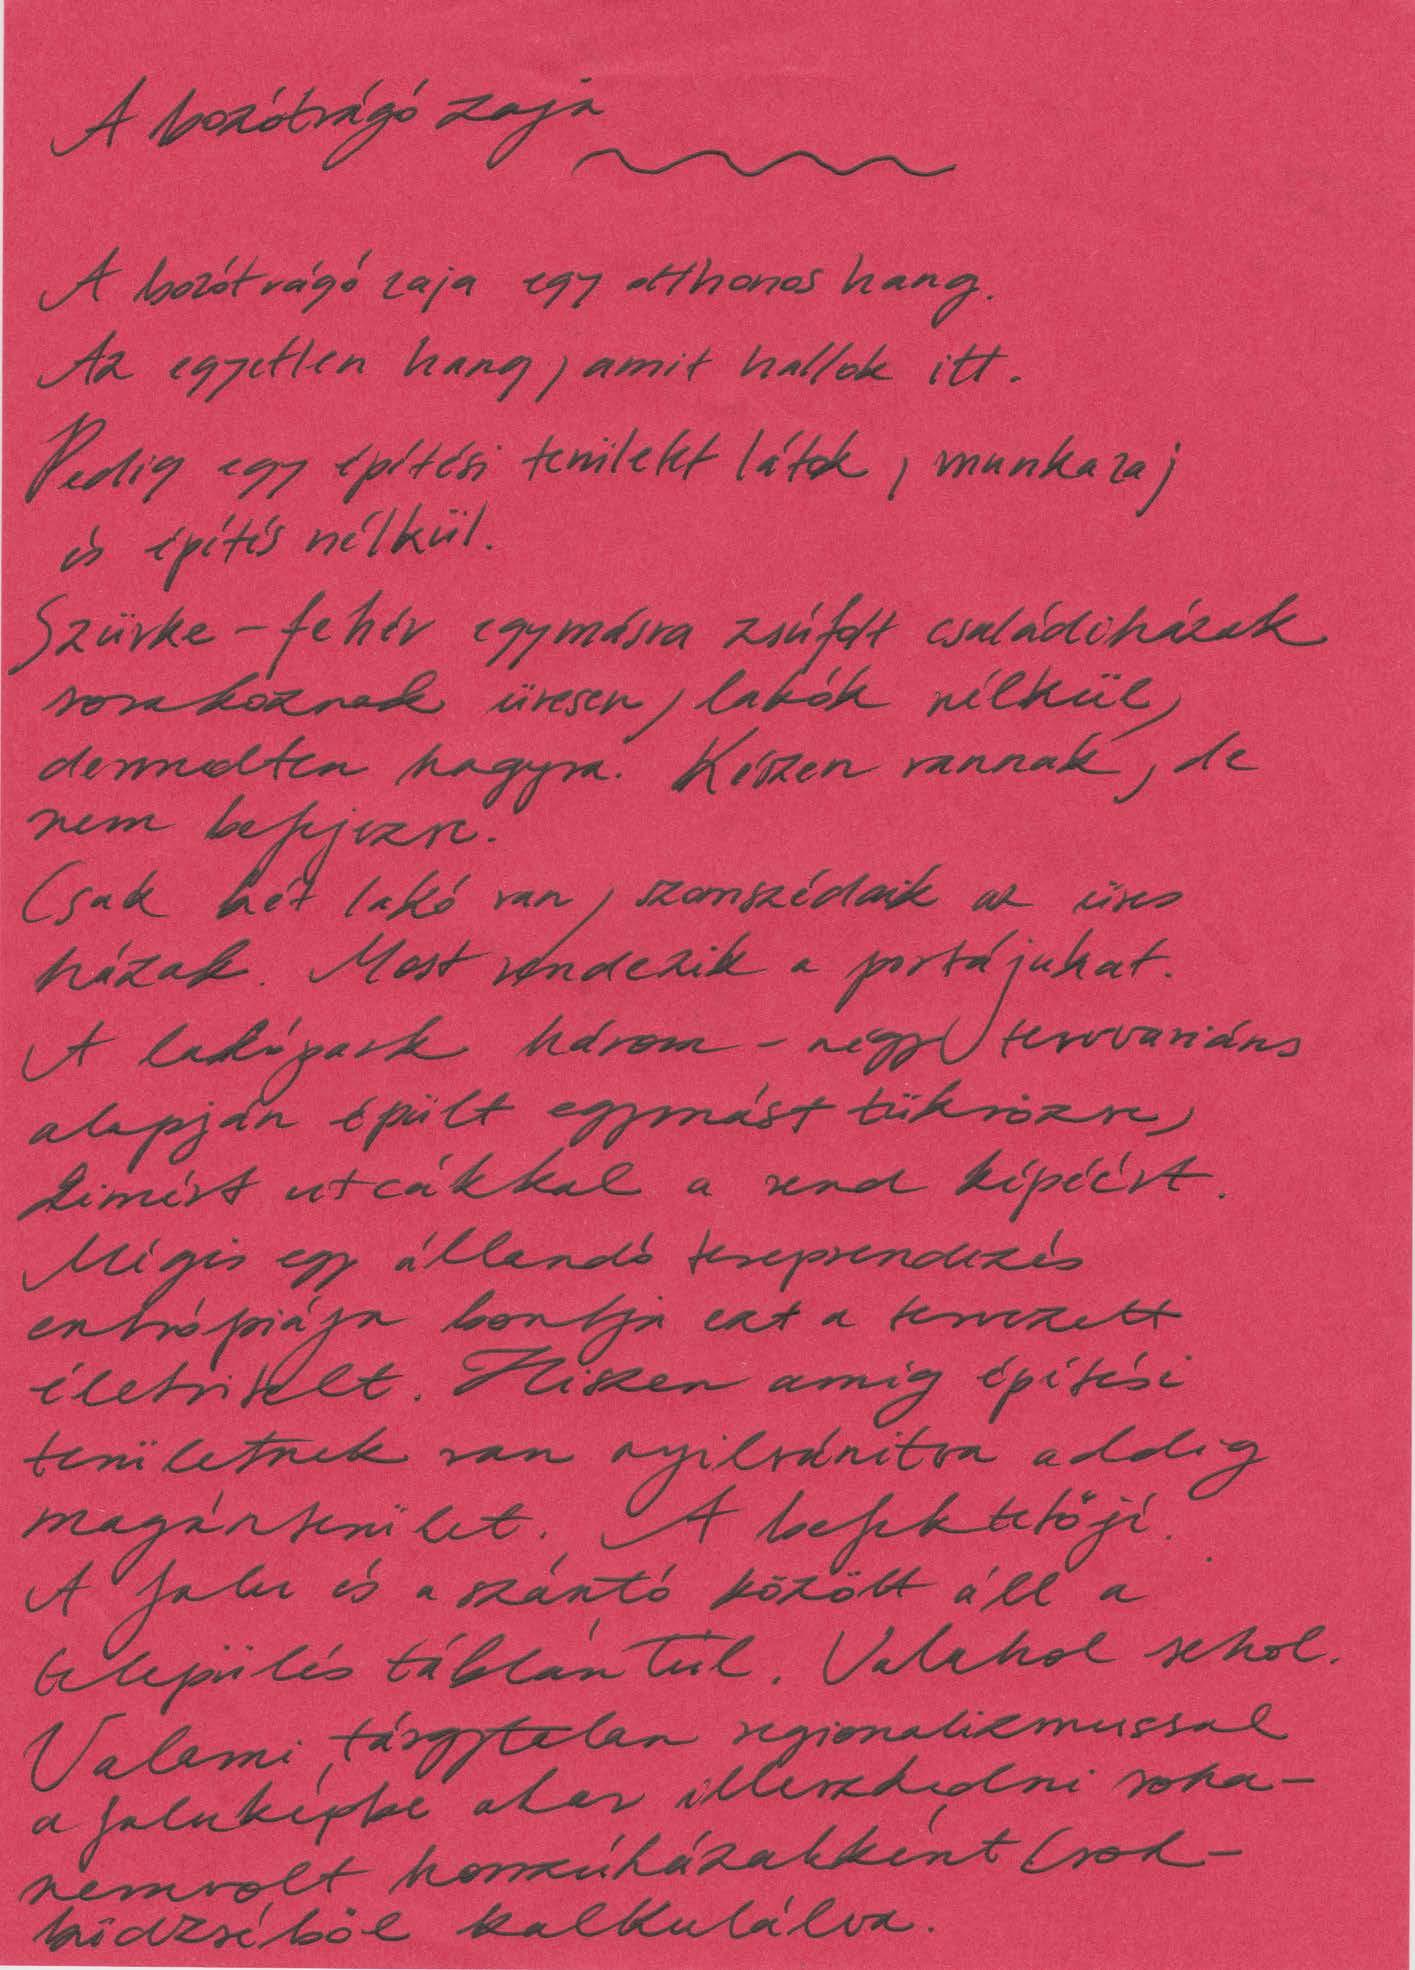 A bozótvágó zaja
A bozótvágó zaja egy otthonos hang.
Az egyetlen hang, amit hallok itt.
Pedig egy építési területet látok, munkazaj
és építés nélkül.
Szürke-fehér egymásra zsúfolt családiházak
sorakoznak üresen, lakók nélkül,
dermedten hagyva. Készen vannak, de
nem befejezve.
Csak két lakó van, szomszédaik az üres
házak. Most rendezik a portájukat.
A lakópark három-négy tervvariáns
alapján épült egymást tükrözve,
kimért utcákkal a rend képéért.
Mégis egy állandó tereprendezés
entrópiája bontja ezt a tervezett
életvitelt. Hiszen amíg építési
területnek van nyilvánítva addig
magánterület. A befektetőjé.
A falu és a szántó között áll a
település táblán túl. Valahol sehol.
Valami tárgytalan regionalizmussal
a faluképbe akar illeszkedni soha-
nemvolt hosszúházakként Csok-
büdzséből kalkulálva.